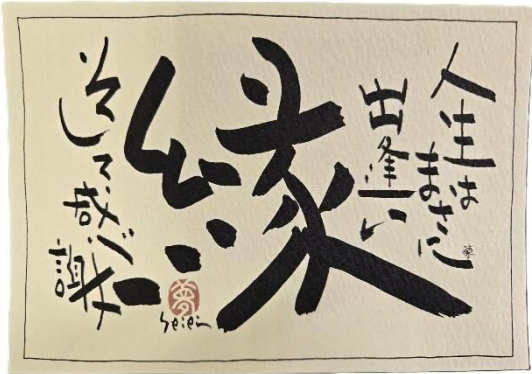 人生は
まさに
出逢い
縁
そして
感謝
夢
Seien